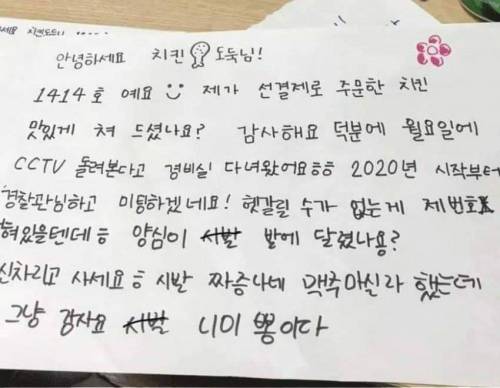 치킨도둑 .....
안녕하세요 치킨 도둑님!!
1414호 예요 제가 선결제로 주문한 치킨
맛있게 쳐 드셨나요? 감사해요 덕분에 월요일에
CCTV 돌려본다고 경비실 다녀왔어요ㅎㅎ 2020년 시작부터
경찰관님하고 미팅하겠네요! 헷갈릴 수가 없는게 제번호
혀있을텐데ㅎ 양심이 시발 밭에 달렸나용?
신차리고 사세요ㅎ 시반 짜증나네 맥주마실라 했는데
그냥 감자요 시발 니미 뽕이다